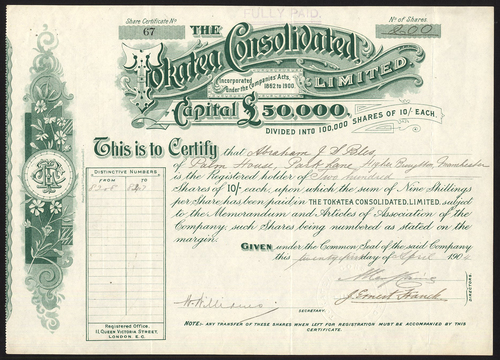 FULLY PAID.
Share Certificate No
67
No of Shares
200
THE
Tokatea Consolidated,
LIMITED.
Incorporated
Under the Companies' Acts,
1862 to 1900.
Capital £50,000,
DIVIDED INTO 100,000 SHARES OF 10/- EACH.
This is to Certify that Abraham J S Bles
of Palm House, Park Lane, Higher Broughton, Manchester
is the Registered holder of Two hundred
Shares of 10/- each, upon which the sum of Nine Shillings
per Share has been paid in THE TOKATEA CONSOLIDATED, LIMITED, subject
to the Memorandum and Articles of Association of the
Company, such Shares being numbered as stated on the
margin.
DISTINCTIVE NUMBERS
FROM TO
GIVEN under the Common Seal of the said Company
this day of April 190
DIRECTORS.
J. Ernest Franck
SECRETARY.
Registered Office.
11, QUEEN VICTORIA STREET,
LONDON. E.C.
NOTE:- ANY TRANSFER OF THESE SHARES WHEN LEFT FOR REGISTRATION MUST BE ACCOMPANIED BY THIS
CERTIFICATE.